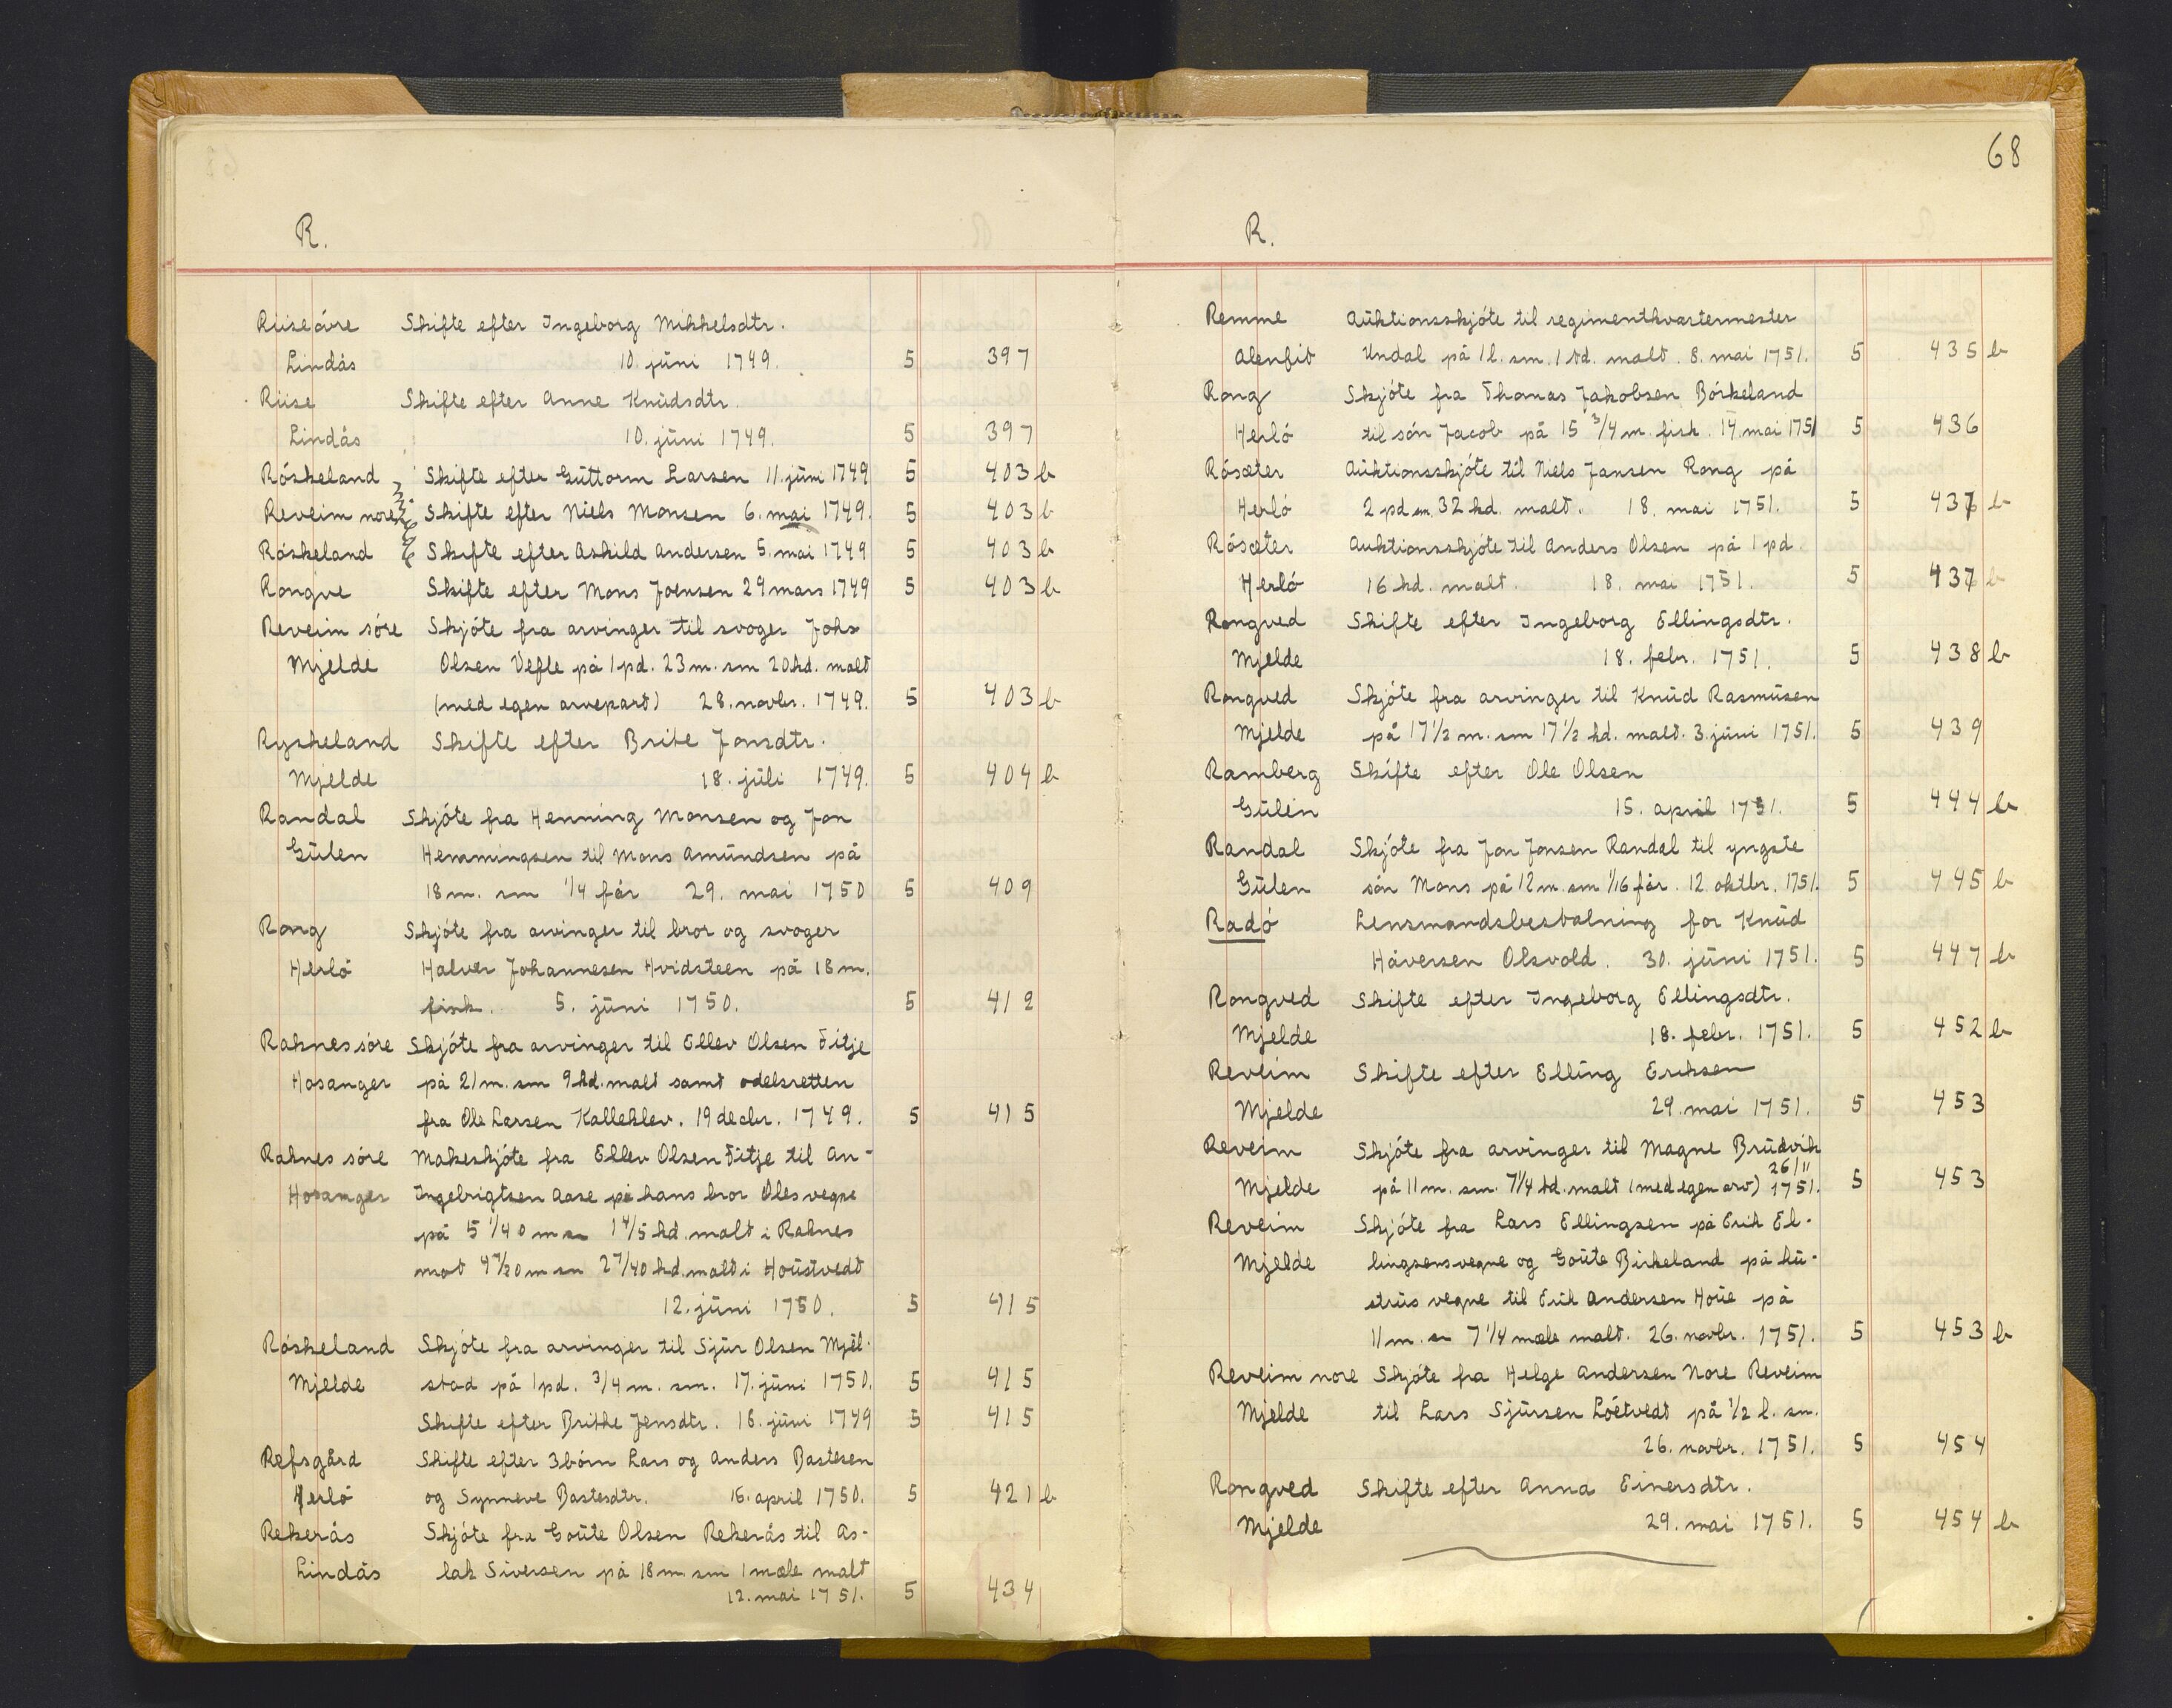 R.
Riise óvre Skifte efter Ingeborg Mikkelsdtr.
Lindås 10. júni 1749. 5 397
Riise Skifte efter Anne Knúdsdtr.
Lindås 10. júni 1749. 5 397
Róskeland Skifte efter Gúttorm Larsen 11. júni 1749 5 403 b
Reveim nore Skifte efter Niels Monsen 6. mai 1749. 5 403 b
Róskeland Skifte efter Askild Andersen 5. mai 1749 5 403 b
Rongve Skifte efter Mons Joensen 29 mars 1749 5 403 b
Reveim sóre Skjóte fra arvinger til svoger Johs
Mjelde Olsen Vefle på 1 pd. 23 m. sm 20 kd. malt
(med egen arvepart) 28. novbr. 1749. 5 403 b
Ryskeland Skifte efter Brite Jonsdtr.
Mjelde 18. júli 1749. 5 404 b
Randal Skjóte fra Henning Monsen og Jon
Gúlen Hemmingsen til Mons Amúndsen på
18 m. sm 1/4 får 29. mai 1750 5 409
Rong Skjóte fra arvinger til bror og svoger
Herló Halver Johannesen Hvidsteen på 18 m.
fisk. 5. júni 1750. 5 412
Raknes sóre Skjóte fra arvinger til Ellev Olsen Fitje
Hosanger på 21 m. sm 9 kd. malt samt odelsretten
fra Ole Larsen Kalleklev. 19 decbr. 1749. 5 415
Raknes sóre Makeskjóte fra Ellev Olsen Fitje til An-
Hosanger Ingebrigtsen Aase på hans bror Oles vegne
på 5 1/40 m sm 1 4/5 kd. malt i Raknes
mot 4 7/20 m sm 2 7/40 kd. malt i Hoústvedt
12. júni 1750. 5 415
Róskeland Skjóte fra arvinger til Sjúr Olsen Mjél-
Mjelde stad på 1 pd. 3/4 m. sm. 17. júni 1750. 5 415
Skifte efter Brithe Jensdtr. 16. júni 1749 5 415
Refsgård Skifte efter 3 bórn Lars og Anders Bastesen
Herló og Synneve Bastesdtr. 16. april 1750. 5 421 b
Rekerås Skjóte fra Goúte Olsen Rekerås til As-
Lindås lak Siversen på 18 m. sm 1 mæle malt
12. mai 1751. 5 434
68
R.
Remme Aúktionsskjóte til regimentkvartermester
Alenfit Undal på 1 l. sm. 1 td. malt. 8. mai 1751. 5 435 b
Rong Skjóte fra Thomas Jakobsen Bórkeland
Herló til són Jacob på 15 3/4 m. fisk. 14. mai 1751 5 436
Rósæter Aúktionsskjóte til Niels Jansen Rong på
Herló 2 pd sm. 32 kd. malt. 18. mai 1751. 5 437 b
Rósæter Auktionsskjóte til Anders Olsen på 1 pd.
Herló 16 kd. malt. 18. mai 1751. 5 437 b
Rongved Skifte efter Ingeborg Ellingsdtr.
Mjelde 18. febr. 1751. 5 438 b
Rongved Skjóte fra arvinger til Knúd Rasmúsen
Mjelde på 17 1/2 m. sm 17 1/2 kd. malt. 3. júni 1751. 5 439
Ramberg Skifte efter Ole Olsen
Gúlen 15. april 1751. 5 444 b
Randal Skjóte fra Jon Jonsen Randal til yngste
Gúlen són Mons på 12 m. sm 1/16 får. 12. oktbr. 1751. 5 445 b
Radó Lensmandsbestalning for Knúd
Håversen Olsvold. 30. júni 1751. 5 447 b
Rongved Skifte efter Ingeborg Ellingsdtr.
Mjelde 18. febr. 1751. 5 452 b
Reveim Skifte efter Elling Eriksen
Mjelde 29. mai 1751. 5 453
Reveim Skjóte fra arvinger til Magne Brúdvik
Mjelde på 11 m. sm. 7 1/4 kd. malt (med egen arv) 26/11 1751. 5 453
Reveim Skjóte fra Lars Ellingsen på Erik El-
Mjelde lingsens vegne og Goúte Birkeland på hú-
strús vegne til Erik Andersen Hoúe på
11 m. sm 7 1/4 mæle malt. 26. novbr. 1751. 5 453 b
Reveim nore Skjóte fra Helge Andersen Nore Reveim
Mjelde til Lars Sjúrsen Lóétvedt på 1/2 l. sm.
26. novbr. 1751. 5 454
Rongved Skifte efter Anna Einersdtr.
Mjelde 29. mai 1751. 5 454 b